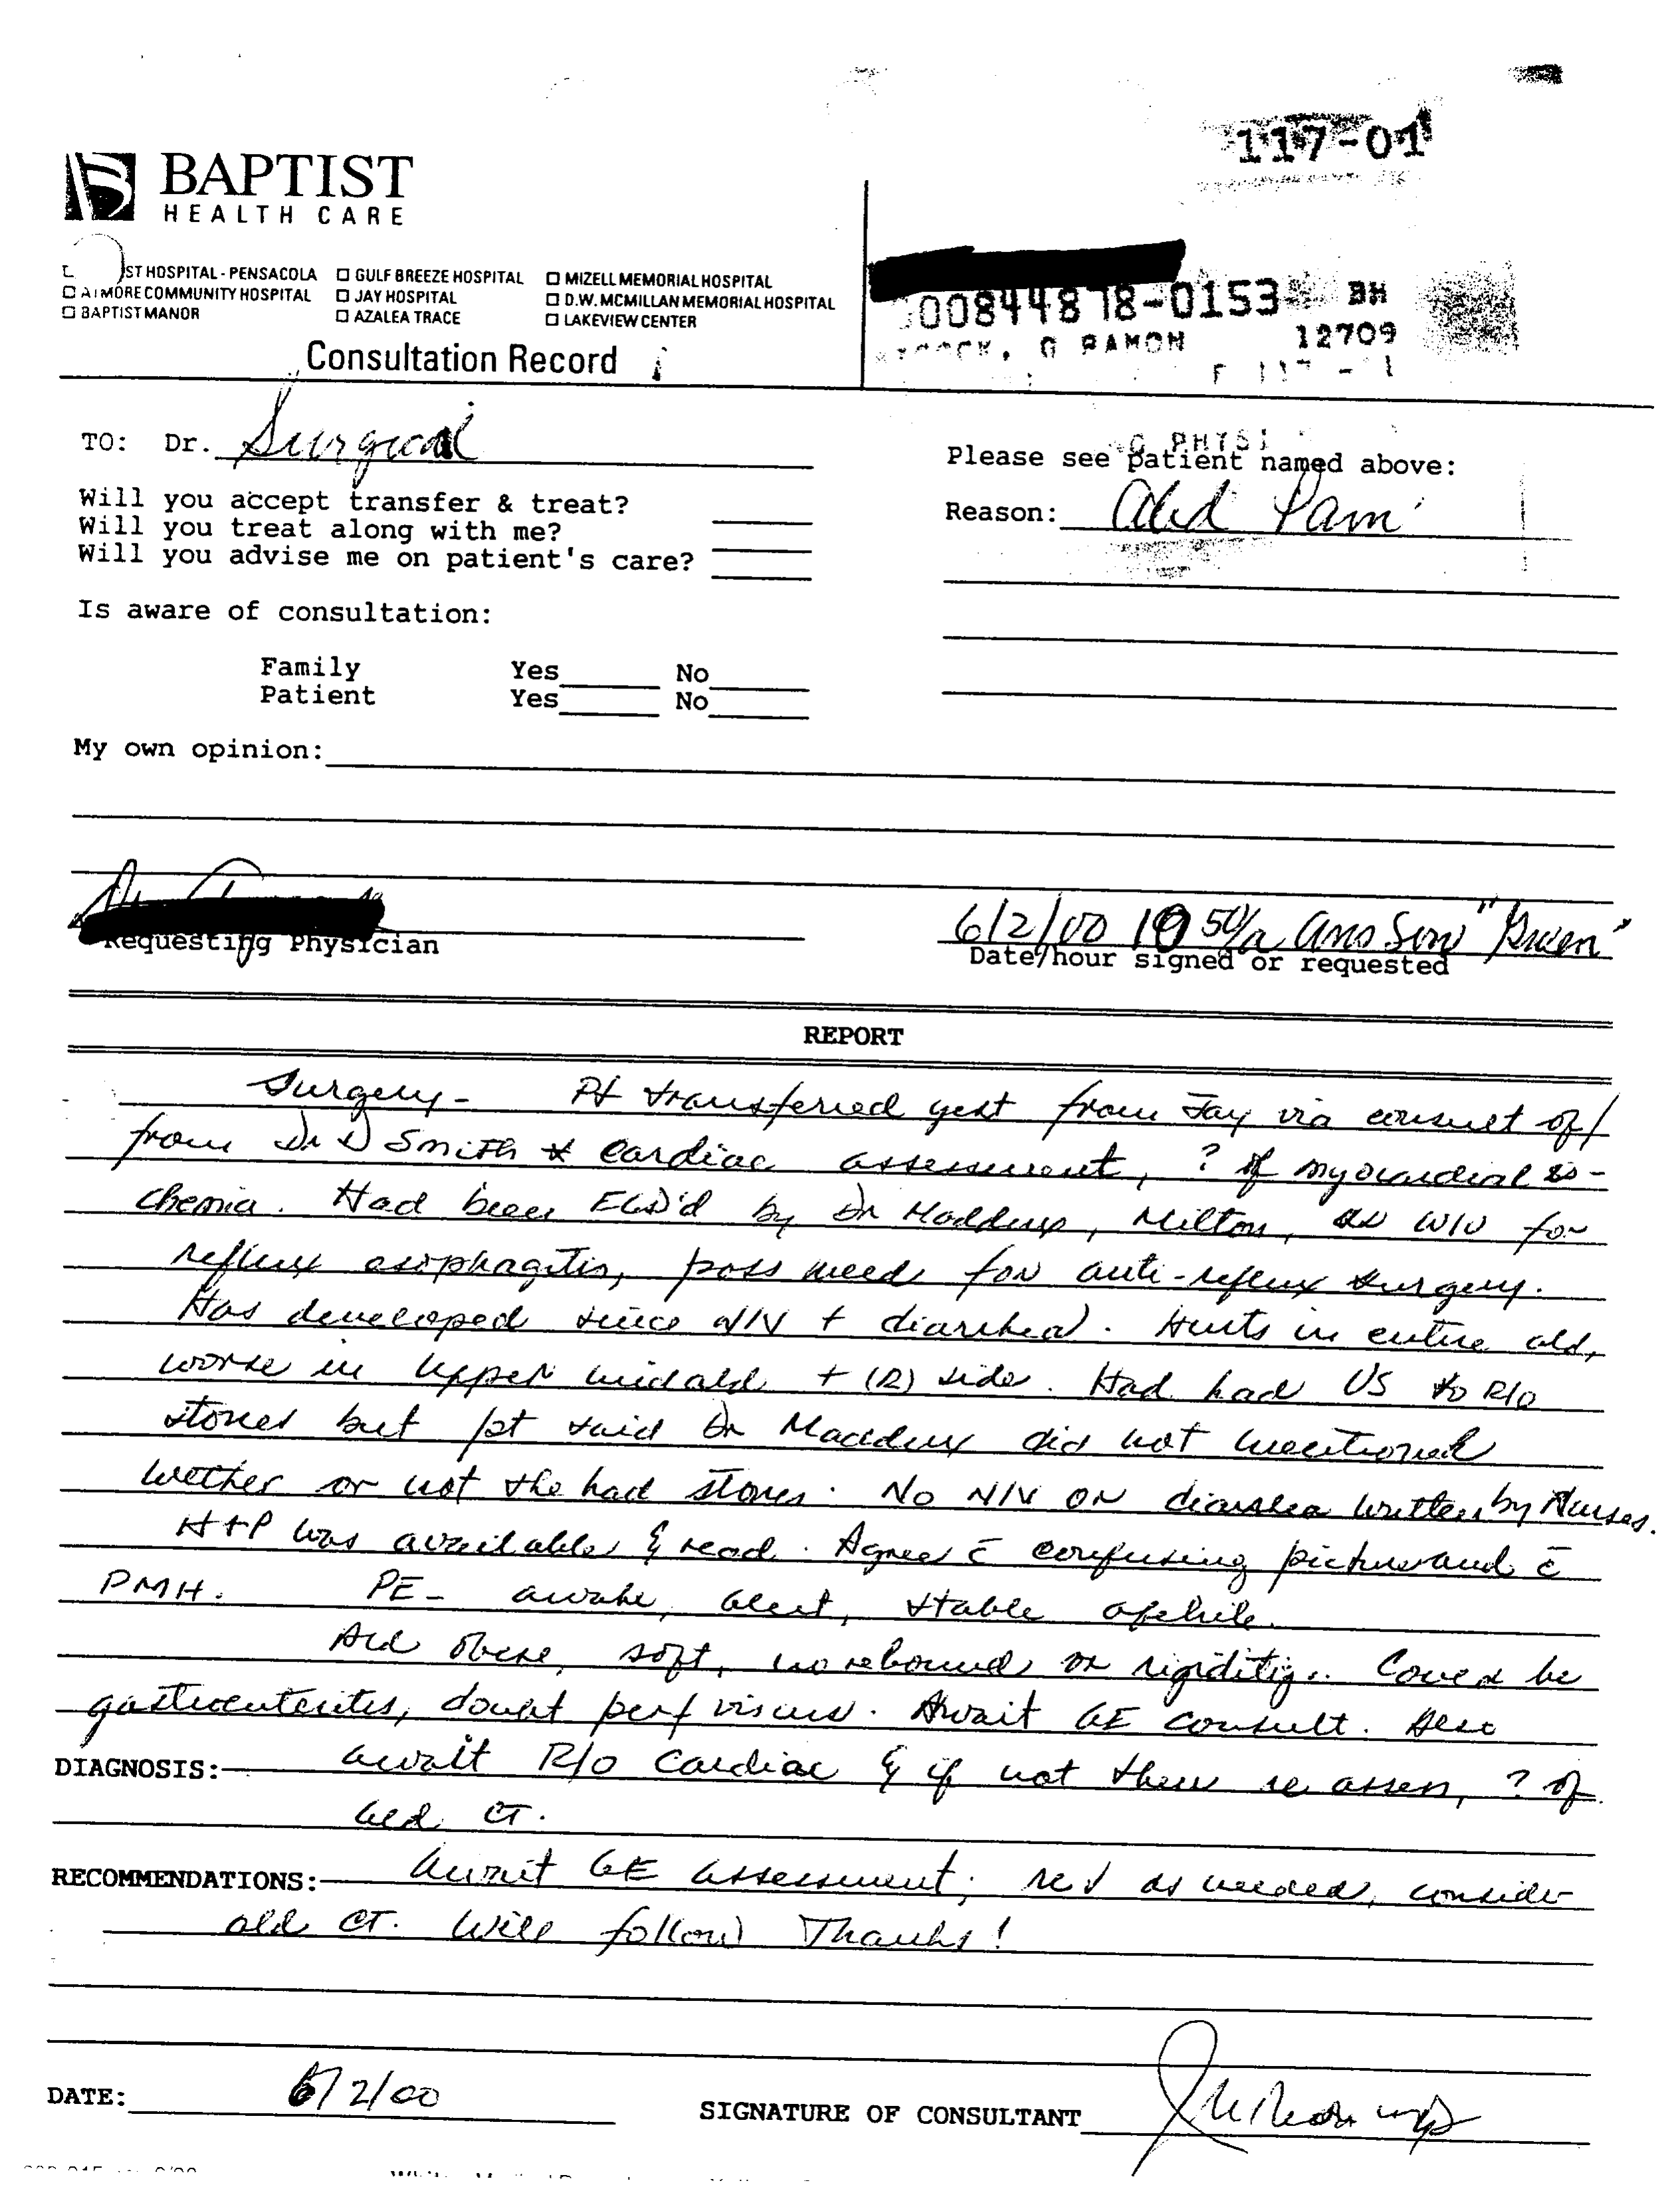 117-01
BAPTIST
HEALTH CARE
ST HOSPITAL - PENSACOLA ☐ GULF BREEZE HOSPITAL ☐ MIZELL MEMORIAL HOSPITAL
☐ ATMORE COMMUNITY HOSPITAL ☐ JAY HOSPITAL ☐ D.W. MCMILLAN MEMORIAL HOSPITAL
☐ BAPTIST MANOR ☐ AZALEA TRACE ☐ LAKEVIEW CENTER
00844878-0153 BH
, G RAMON 12709
Consultation Record
TO: Dr. Surgical
Please see patient named above:
Reason: Abd Pain
Will you accept transfer & treat?
Will you treat along with me?
Will you advise me on patient's care?
Is aware of consultation:
Family Yes No
Patient Yes No
My own opinion:
Requesting Physician
6/2/00 1050/a Ans Serv "Gwen"
Date/hour signed or requested
REPORT
Surgery - Pt transferred yest from Jay via consult of/
from Dr D Smith & cardiac assessment, ? of myocardial is-
chemia. Had been EGD'd by Dr Maddux, Milton, as W/U for
reflux esophagitis, poss need for anti-reflux surgery.
Has developed since N/V + diarrhea. Hurts in entire abd,
worse in upper mid abd + (R) side. Had had US to R/o
stones but pt said Dr Maddux did not mentioned
wether or not she had stones. No N/V or diarrhea written by Nurses.
H+P was available & read. Agree c̄ confusing picture and c̄
PMH. PE - awake, alert, stable afebrile.
Abd obese, soft, no rebound or rigidity. Could be
gastroenteritis, doubt perf viscus. Await GE consult. Also
DIAGNOSIS: await R/o cardiac & if not then re assess, ? of
abd CT.
RECOMMENDATIONS: Await GE assessment; as needed, consider
abd CT. Will follow Thanks!
DATE: 6/2/00
SIGNATURE OF CONSULTANT